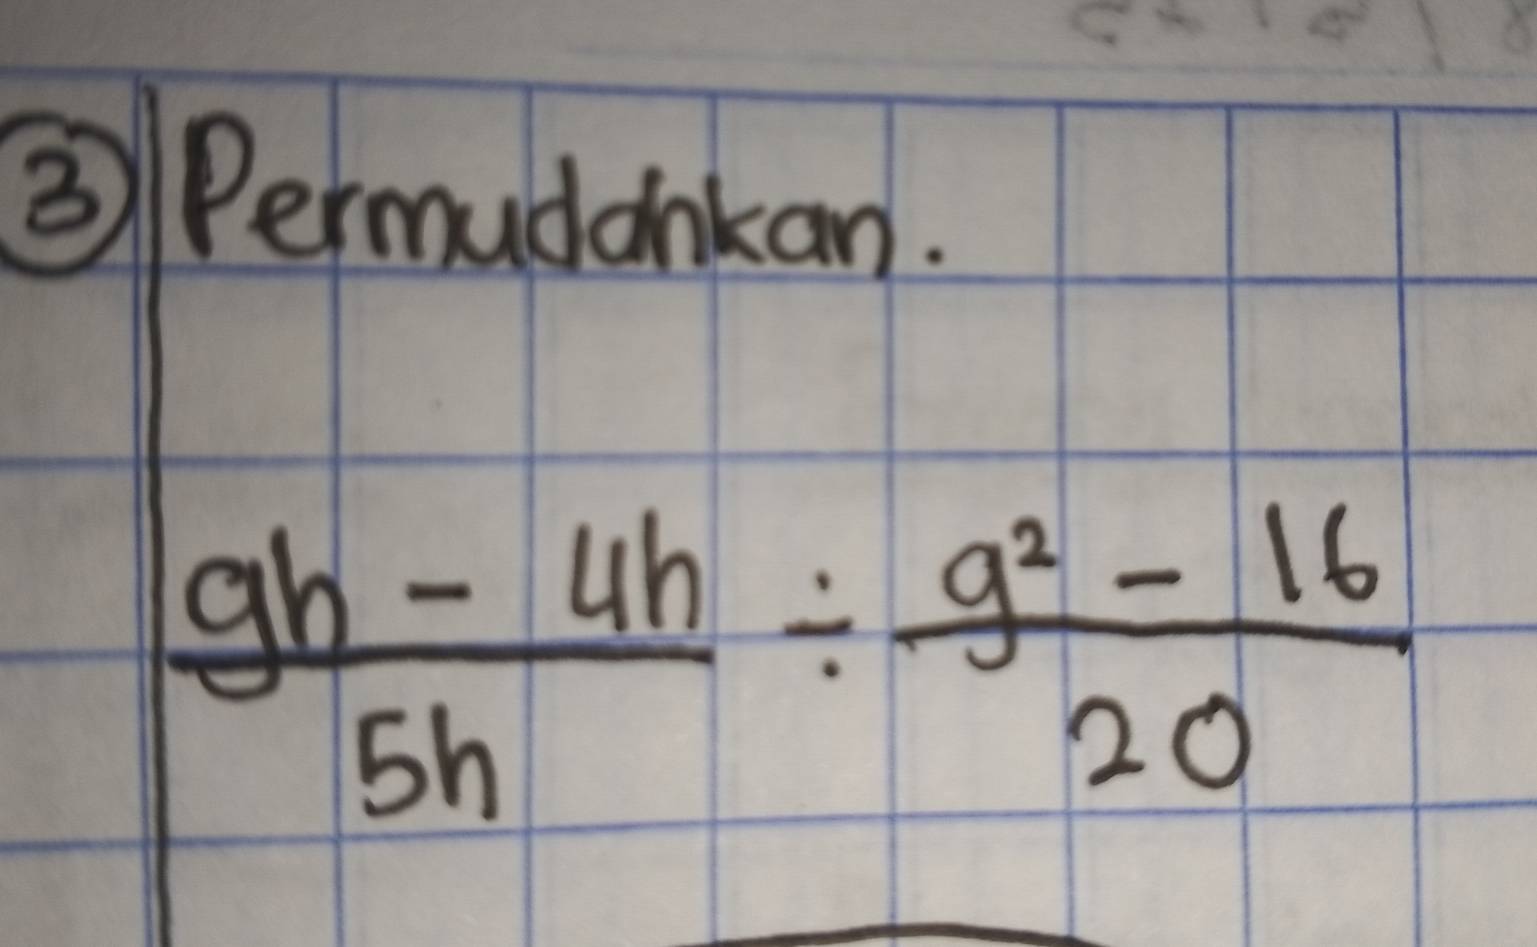 3 Permudahkan.
gh - 4h ÷ g² - 16
5h 20